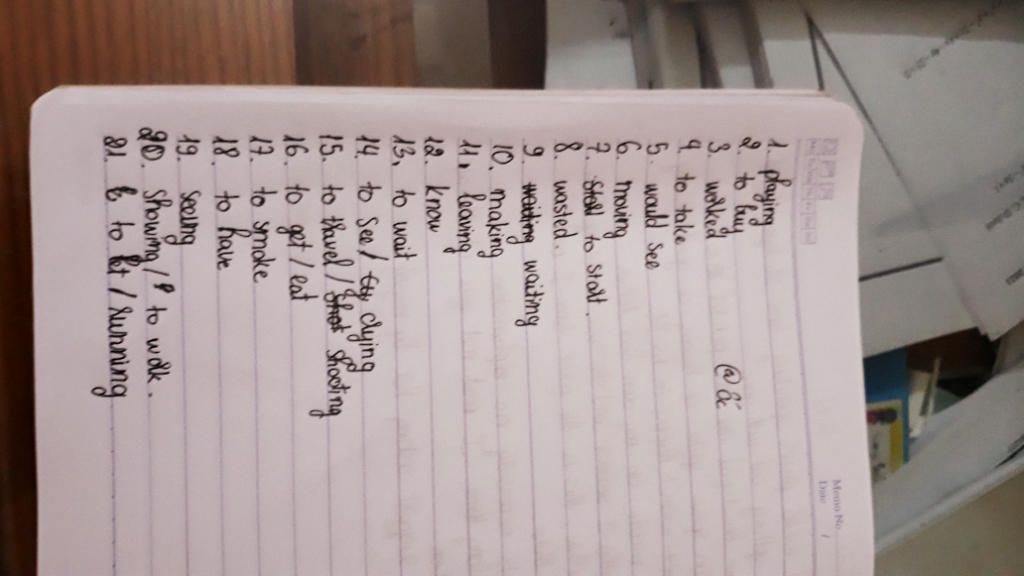 Memo No.
Date /
1. playing
2. to buy
3. worked
4. to take
5. would see
6. moving
7. start to start.
8. wasted.
9. waiting waiting
10. making
11. leaving
12. know
13. to wait
14. to see / dying
15. to travel / shoot shooting
16. to get / eat
17. to smoke
18. to have
19. seeing
20. showing / to walk.
21. to / running